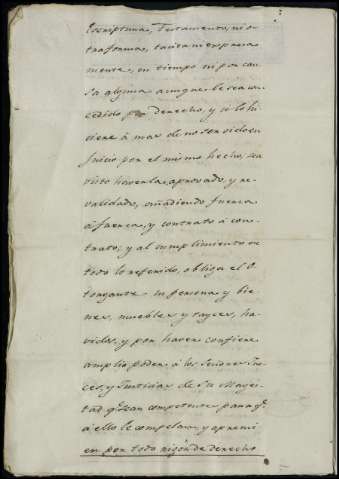 Escriptura, Testamento, ni o-
tra forma, tacita ni expresa
mente, en tiempo ni por cau-
sa alguna aunque le sea con
cedido por derecho, y si lo hi
ciere à mas de no ser oido en
Juicio por el mismo hecho, sea
visto haverla aprovado, y re-
validado, añadiendo fuerza
à fuerza, y contrato à con-
trato; y al cumplimiento de
todo lo referido, obliga el O-
torgante su persona y bie-
nes, muebles y rayces, ha-
vidos, y por haver confiere
amplio poder à los Señores Jue-
ces, y Justicias de Su Mages-
tad qe. sean competentes para qe.
à ello le compelan, y apremi-
en por todo rigor de derecho